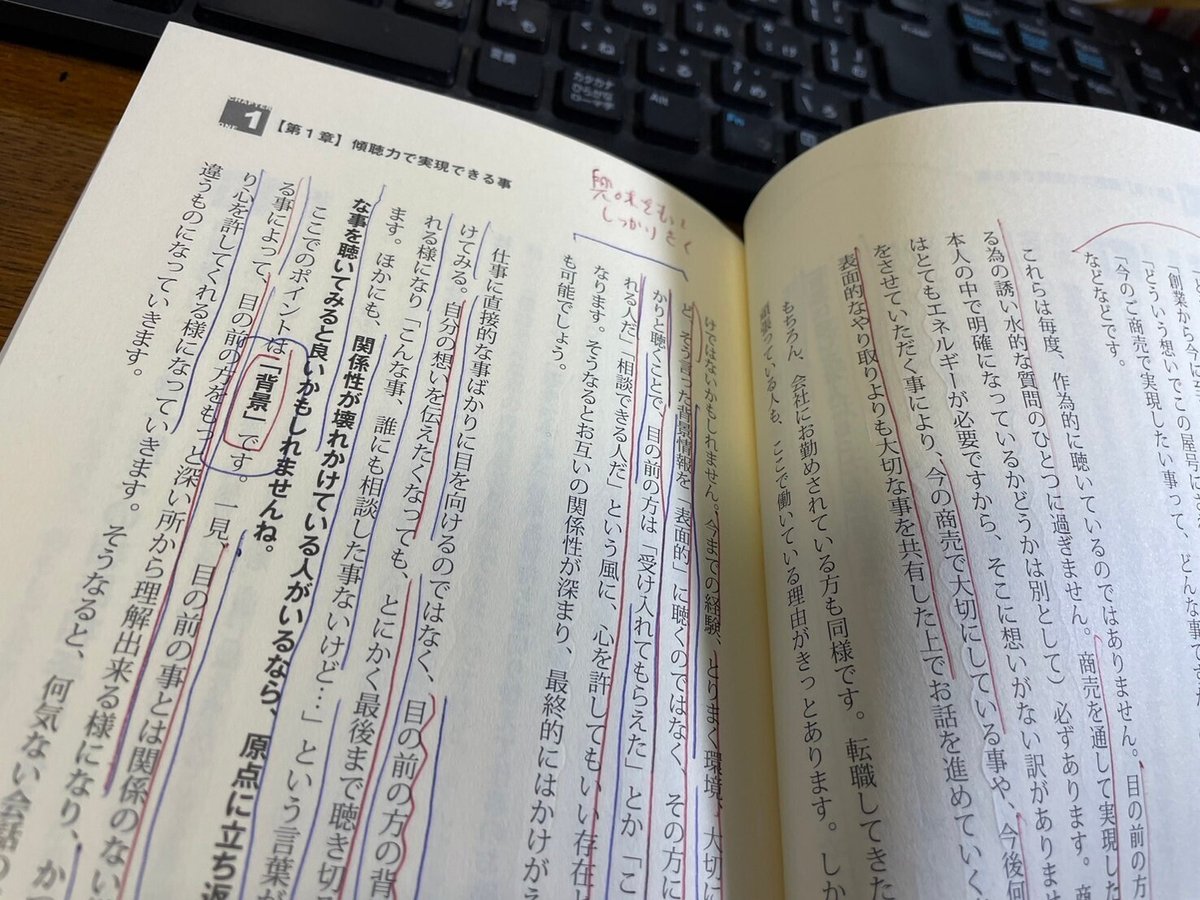 「創業から今に
「どういう想いでこの屋号に
「今のご商売で実現したい事って、どんな事で
などなどです。
これらは毎度、作為的に聴いているのではありません。目の前の方
る為の誘い水的な質問のひとつに過ぎません。商売を通して実現した
本人の中で明確になっているかどうかは別として）必ずあります。商
はとてもエネルギーが必要ですから、そこに想いがない訳がありませ
をさせていただく事により、今の商売で大切にしている事や、今後何
表面的なやり取りよりも大切な事を共有した上でお話を進めていく
もちろん、会社にお勤めされている方も同様です。転職してきた
頑張っている人も、ここで働いている理由がきっとあります。しか
CHAPTER
1
ONE
【第1章】傾聴力で実現できる事
興味をもって
しっかりきく
けではないかもしれません。今までの経験、とりまく環境、大切に
ど、そう言った背景情報を「表面的」に聴くのではなく、その方に
かりと聴くことで、目の前の方は「受け入れてもらえた」とか「こ
れる人だ」「相談できる人だ」という風に、心を許してもいい存在と
なります。そうなるとお互いの関係性が深まり、最終的にはかけがえ
も可能でしょう。
仕事に直接的な事ばかりに目を向けるのではなく、目の前の方の背
けてみる。自分の想いを伝えたくなっても、とにかく最後まで聴き切
れる様になり「こんな事、誰にも相談した事ないけど…」という言葉が
ます。ほかにも、関係性が壊れかけている人がいるなら、原点に立ち返
な事を聴いてみると良いかもしれませんね。
ここでのポイントは「背景」です。一見、目の前の事とは関係のない
る事によって、目の前の方をもっと深い所から理解出来る様になり、か
り心を許してくれる様になっていきます。そうなると、何気ない会話の
違うものになっていきます。
変換
カタカナ
ひらがな
ローマ字
Alt
Fn